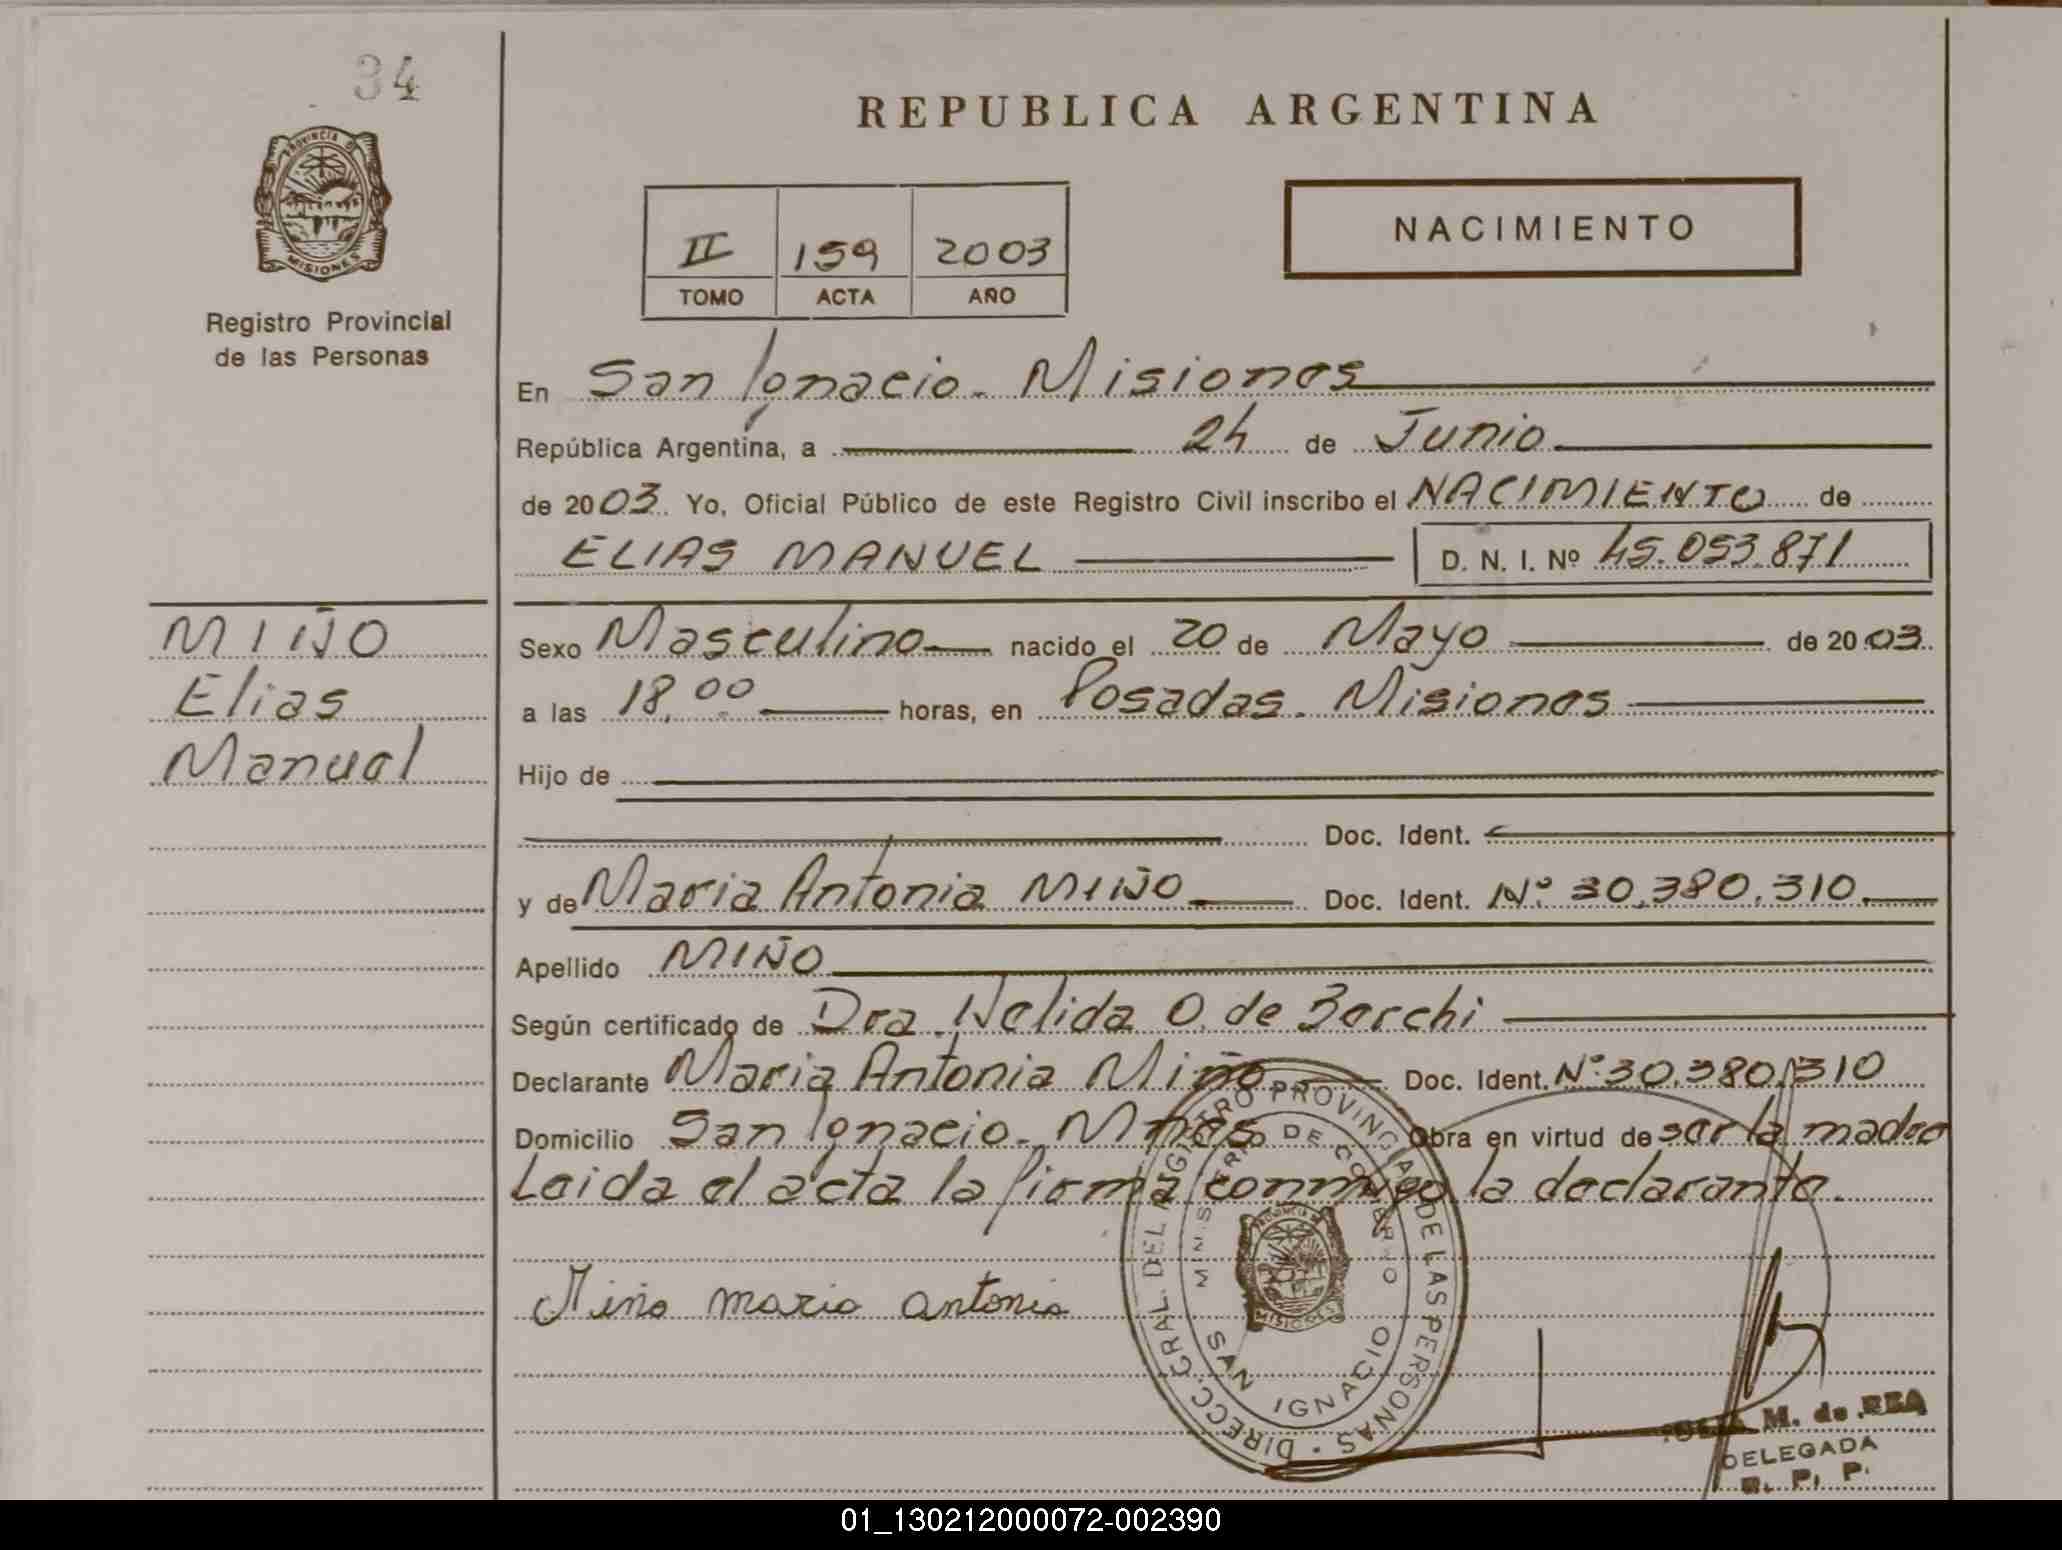 34
REPUBLICA ARGENTINA
PROVINCIA DE MISIONES
Registro Provincial
de las Personas
II 159 2003
TOMO ACTA AÑO
NACIMIENTO
En San Ignacio. Misiones
República Argentina, a 24 de Junio
de 2003. Yo, Oficial Público de este Registro Civil inscribo el NACIMIENTO de
ELIAS MANUEL D. N. I. Nº 45.053.871
MIÑO
Elias
Manuel
Sexo Masculino nacido el 20 de Mayo de 2003
a las 18,00 horas, en Posadas. Misiones
Hijo de
Doc. Ident.
y de Maria Antonia MIÑO Doc. Ident. Nº 30.380.310
Apellido MIÑO
Según certificado de Dra. Nelida O. de Barchi
Declarante Maria Antonia Miño Doc. Ident. Nº 30.380.310
Domicilio San Ignacio. Mnes Obra en virtud de ser la madre
Leida el acta la firma conmigo la declarante.
Miño maria antonia
DIRECC. GRAL. DEL REGISTRO PROVINCIAL DE LAS PERSONAS
MINISTERIO DE GOBIERNO
PROVINCIA DE MISIONES
SAN IGNACIO
M. de REA
DELEGADA
R. P. P.
01_130212000072-002390